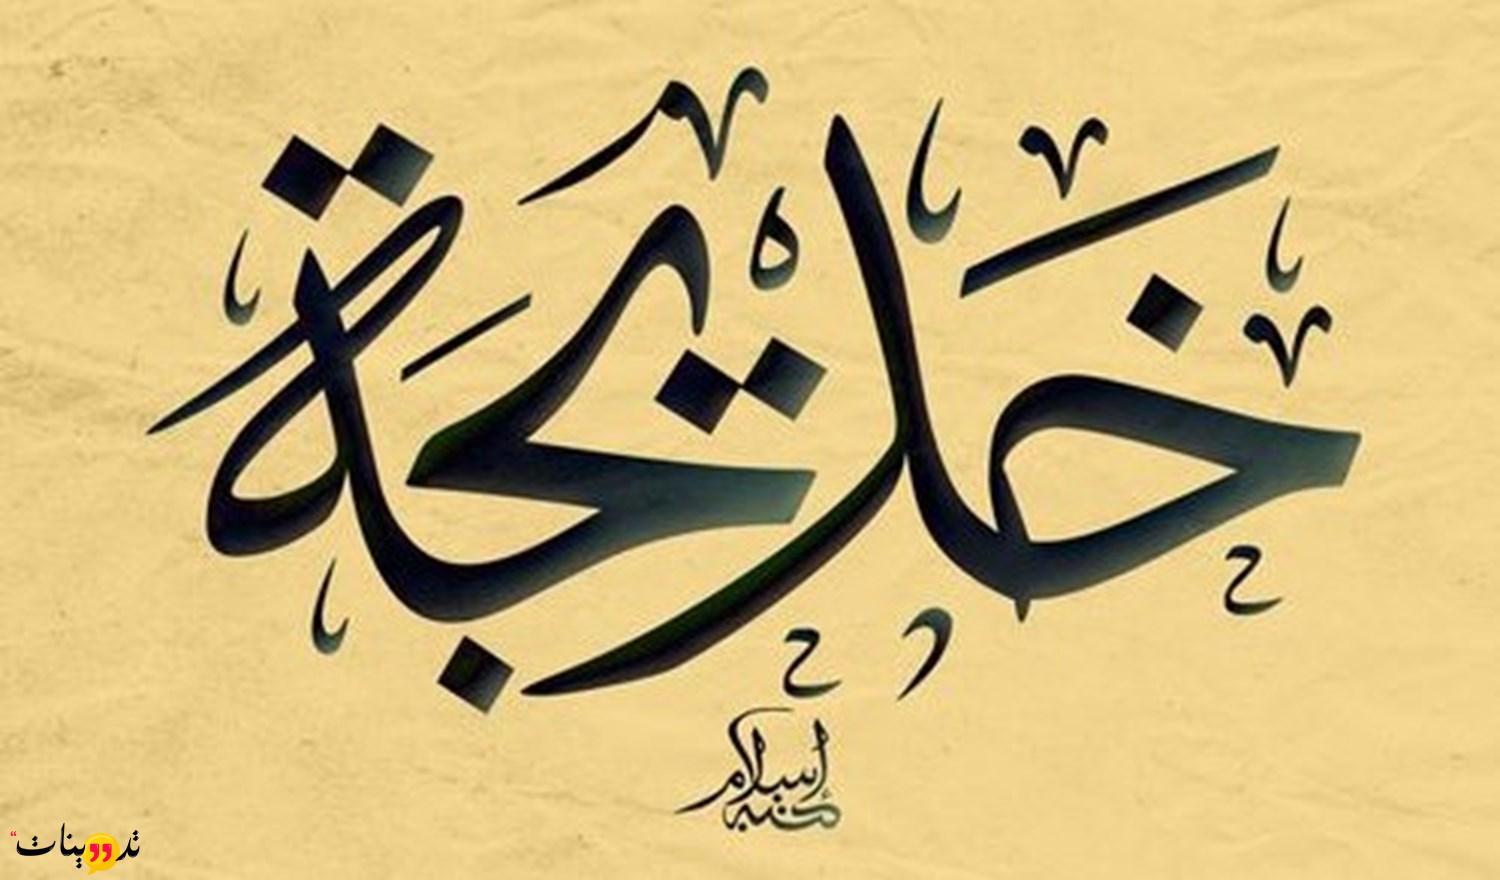 خديجة
كتبه إسلام
تدوينات